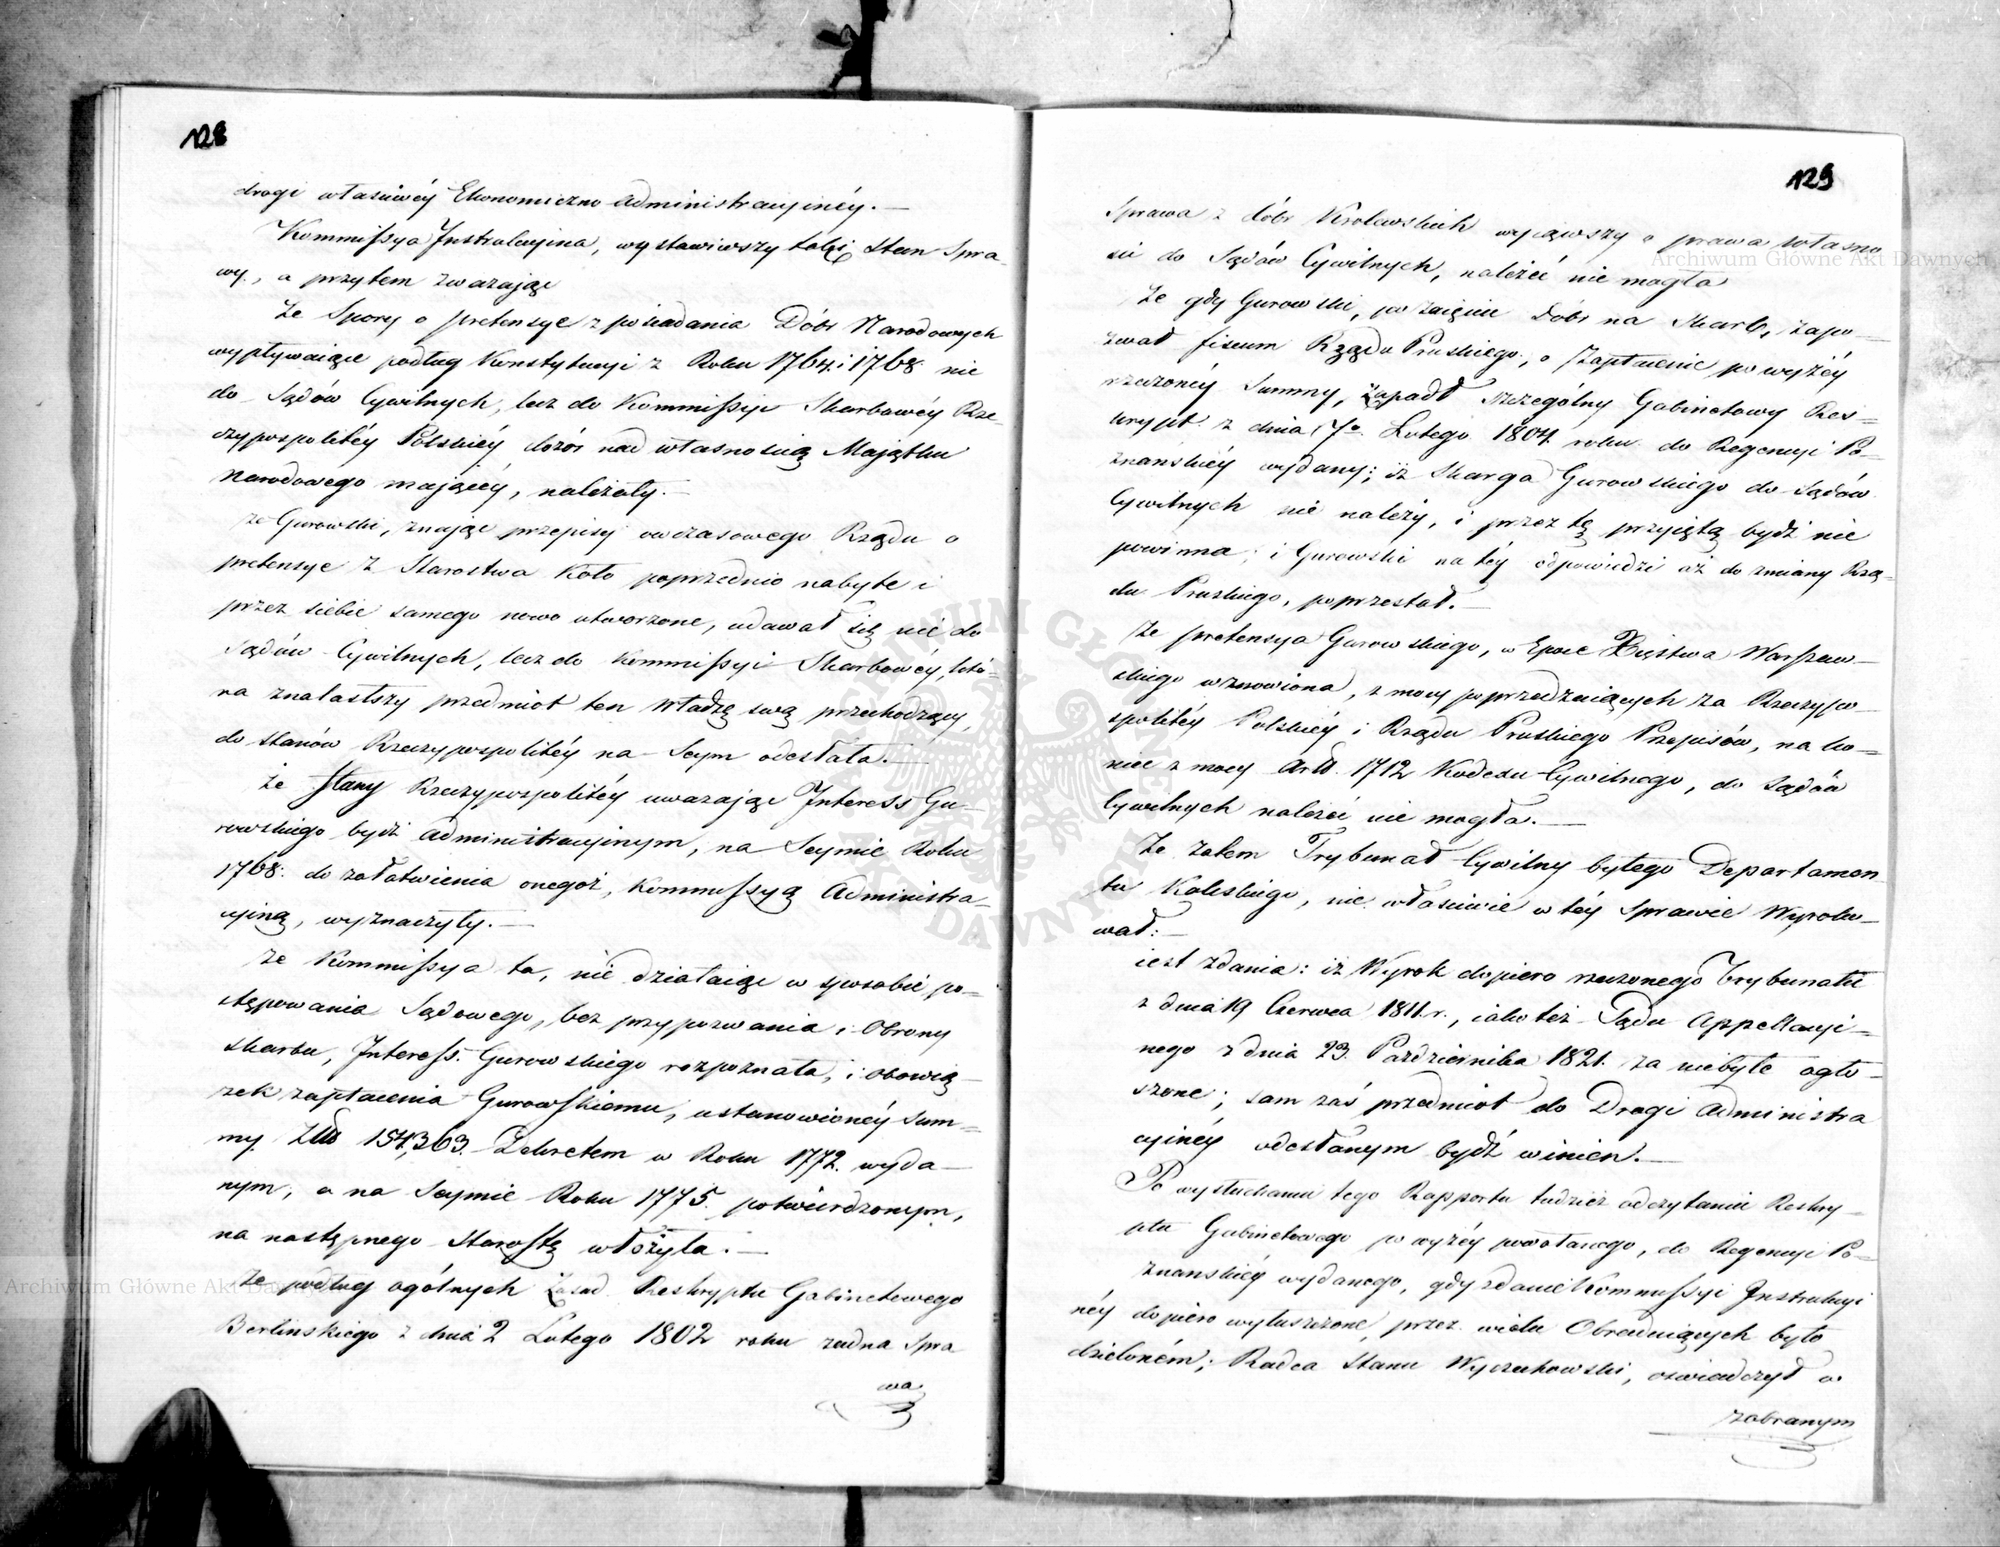 128
drogi właściwéy Ekonomiczno Administracyinéy. —
Kommissya Instrukcyina, wystawiwszy taki Stan Spra-
wy, a przytem zwazając
Że Spory o pretensye z posiadania Dóbr Narodowych
wypływaiące podług Konstytucyi z Roku 1764 i 1768 nie
do Sądów Cywilnych, lecz do Kommissyi Skarbowéy Rze-
czypospolitéy Polskiéy dozór nad własnością Majątku
Narodowego mającéy, należały. —
że Gurowski, znając przepisy owczasowego Rządu o
pretensye z Starostwa Koło poprzednio nabyte i
przez siebie samego nowo utworzone, udawał się nie do
Sądów Cywilnych, lecz do Kommissyi Skarbowéy, któ-
ra znalazłszy przedmiot ten władzę swą przechodzący,
do stanów Rzeczypospolitéy na Seym odesłała. —
że Stany Rzeczypospolitéy uwazając Interess Gu-
rowskiego bydź administracyinym, na Seymie Roku
1768. do załatwienia onegoż, Kommissyą Administra-
cyiną, wyznaczyły. —
że Kommissya ta, nie działaiąc w sposobie po-
stępowania Sądowego, bez przypozwania i Obrony
Skarbu, Interess Gurowskiego rozpoznała, i obowią-
zek zapłacenia Gurowskiemu, ustanowionéy Sum-
my Złt 154,363. Dekretem w Roku 1772. wyda-
nym, a na Seymie Roku 1775. potwierdzonym,
na następnego Starostę włożyła. —
Że podług ogólnych Zasad Reskryptu Gabinetowego
Berlinskiego z dnia 2 Lutego 1802 roku żadna Spra
wa
129
Sprawa z dóbr Krolewskich wyjąwszy o prawa własno
ści do Sądów Cywilnych, należeć nie mogła
Że gdy Gurowski, po zaięciu Dóbr na Skarb, zapo-
zwał fiscum Rządu Pruskiego, o Zapłacenie powyżéy
rzeczonéy Summy, zapadł szczególny Gabinetowy Res-
krypt z dnia 17o Lutego 1804 roku do Regencyi Po-
znanskiéy wydany; iż Skarga Gurowskiego do Sądów
Cywilnych nie należy, i przez tę przyiętą bydź nie
powinna; i Gurowski na téy odpowiedzi aż do zmiany Rzą-
du Pruskiego, poprzestał. —
Że pretensya Gurowskiego, w Epoce Xięstwa Warszaw-
skiego wznowiona, z mocy poprzedzaiących za Rzeczypo-
spolitéy Polskiéy i Rządu Pruskiego Przepisów, na ko-
niec z mocy Art. 1712 Kodexu Cywilnego, do Sądów
Cywilnych należeć nie mogła. —
Że zatem Trybunał Cywilny byłego Departamen
tu Kaliskiego, nie właściwie w téy Sprawie Wyroko-
wał: —
iest zdania: iż Wyrok dopiero rzeczonego Trybunału
z dnia 19 Czerwca 1811. r., iako też Sądu Appellacyi-
nego z dnia 23. Pazdziernika 1821. za niebyłe ogło-
szone; sam zaś przedmiot do Drogi Administra
cyinéy odesłanym bydź winien. —
Po wysłuchaniu tego Rapportu tudzież odczytaniu Reskry-
ptu Gabinetowego powyżéy powołanego, do Regencyi Po-
znanskiéy wydanego, gdy zdanie Kommissyi Instrukcyi
néy dopiero wyłuszczone, przez wielu Obraduiących było
dzieloném; Radca Stanu Wyczechowski, oswiadczył w
zabranym
Archiwum Główne Akt Dawnych
ARCHIWUM GŁÓWNE AKT DAWNYCH
Archiwum Główne Akt Dawnych